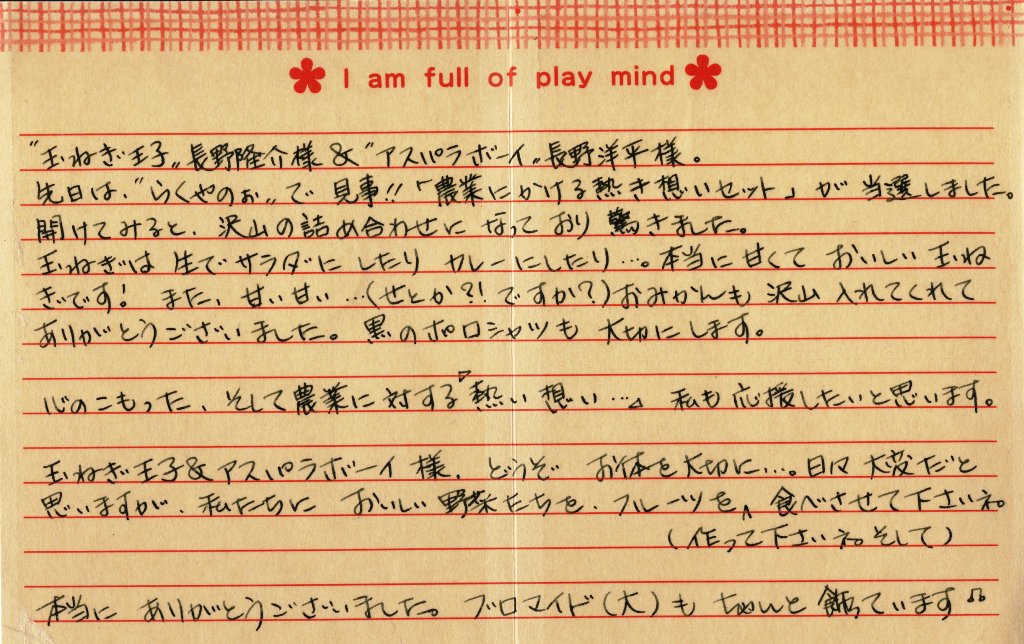 I am full of play mind
"玉ねぎ王子" 長野隆介様 & "アスパラボーイ" 長野洋平様。
先日は、"らくやのぉ" で 見事!!「農業にかける熱き想いセット」が 当選しました。
開けてみると、沢山の詰め合わせに なっており 驚きました。
玉ねぎは 生でサラダにしたり カレーにしたり…。本当に甘くて おいしい 玉ね
ぎです! また、甘い甘い…(せとか?!ですか?)おみかんも 沢山 入れてくれて
ありがとうございました。黒のポロシャツも 大切にします。
心のこもった、そして農業に対する『熱い 想い…』 私も応援したいと思います。
玉ねぎ王子&アスパラボーイ 様、どうぞ お体を大切に…。日々 大変だと
思いますが、私たちに おいしい 野菜たちを、フルーツを、食べさせて下さいネ。
(作って下さいネ。そして)
本当に ありがとうございました。ブロマイド(大)も ちゃんと 飾っています♫